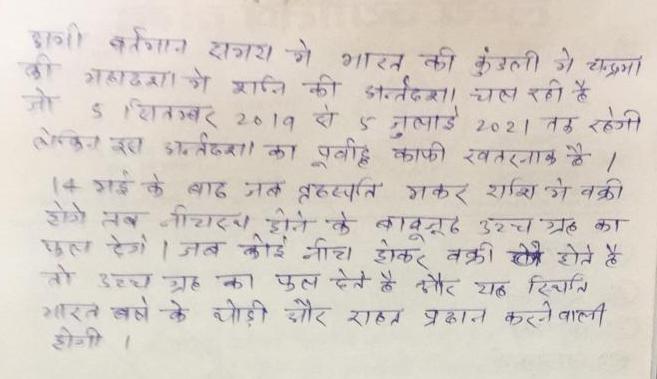 अभी वर्तमान समय मे भारत की कुंडली मे चन्द्रमा
की महादशा मे शनि की अर्न्तदशा चल रही है
जो 5 सितम्बर 2019 से 5 जुलाई 2021 तक रहेगी
लेकिन इस अर्न्तदशा का पूर्वार्द्ध काफी खतरनाक है ।
14 मई के बाद जब बृहस्पति मकर राशि मे वक्री
होगे तब नीचस्थ होने के बावजूद उच्च ग्रह का
फल देगें । जब कोई नीच होकर वक्री होते है
तो उच्च ग्रह का फल देते है और यह स्थिति
भारत वर्ष के थोडी और राहत प्रदान करनेवाली
होगी ।